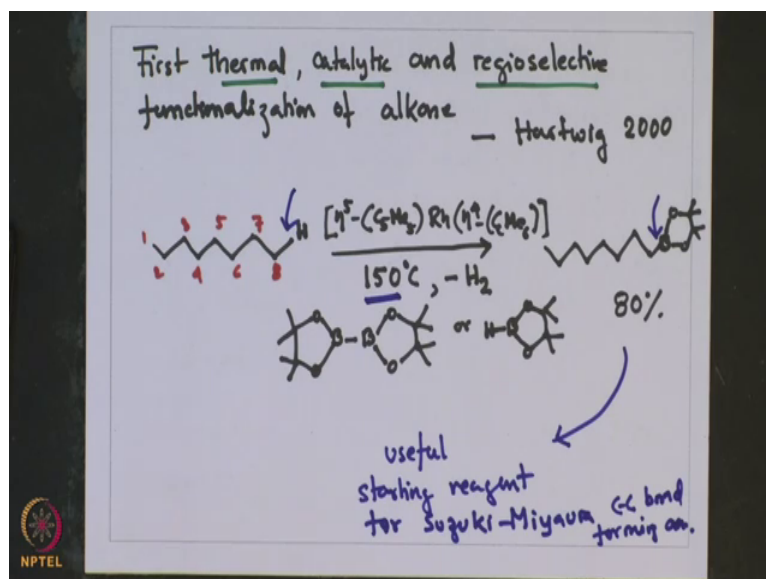 First thermal, catalytic and regioselective
functionalization of alkane
— Hartwig 2000
1 2 3 4 5 6 7 8 H
[η⁵-(C₅Me₅) Rh(η⁴-(C₆Me₆)]
150°C, -H₂
O O B-B O O or H-B O O
B O O
80%
useful
starting reagent
for Suzuki-Miyaura C-C bond
forming
NPTEL